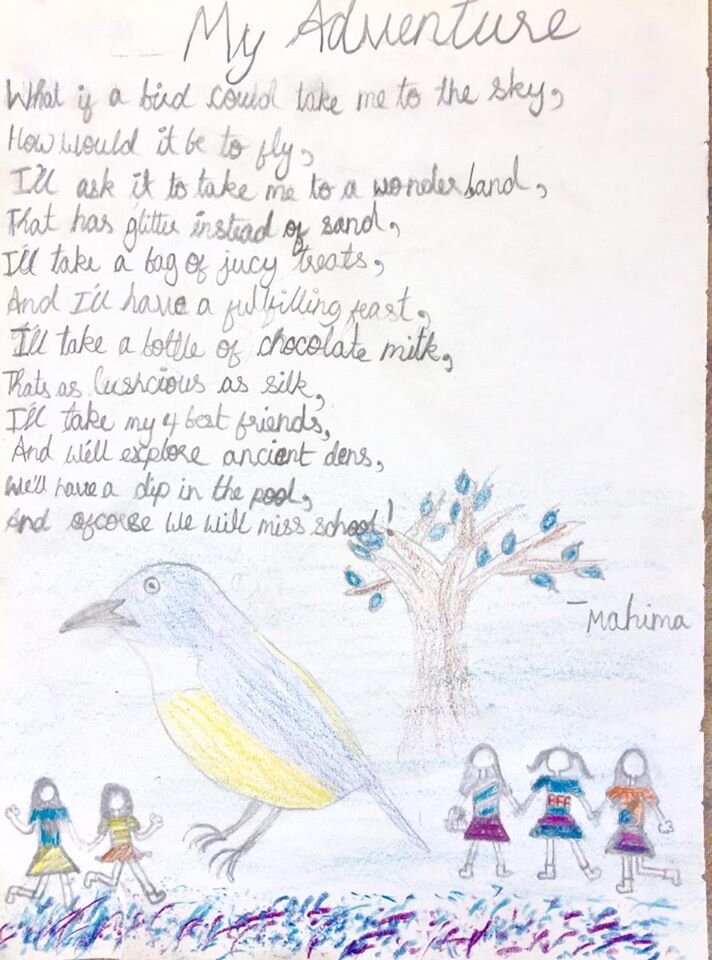 My Adventure
What if a bird could take me to the sky,
How would it be to fly,
I'll ask it to take me to a wonder band,
That has glitter instead of sand,
I'll take a bag of jucy treats,
And I'll have a fulfilling feast,
I'll take a bottle of chocolate milk,
Thats as lushcious as silk,
I'll take my 4 best friends,
And we'll explore ancient dens,
We'll have a dip in the pool,
And ofcorse we will miss school!
-Mahima
BFF